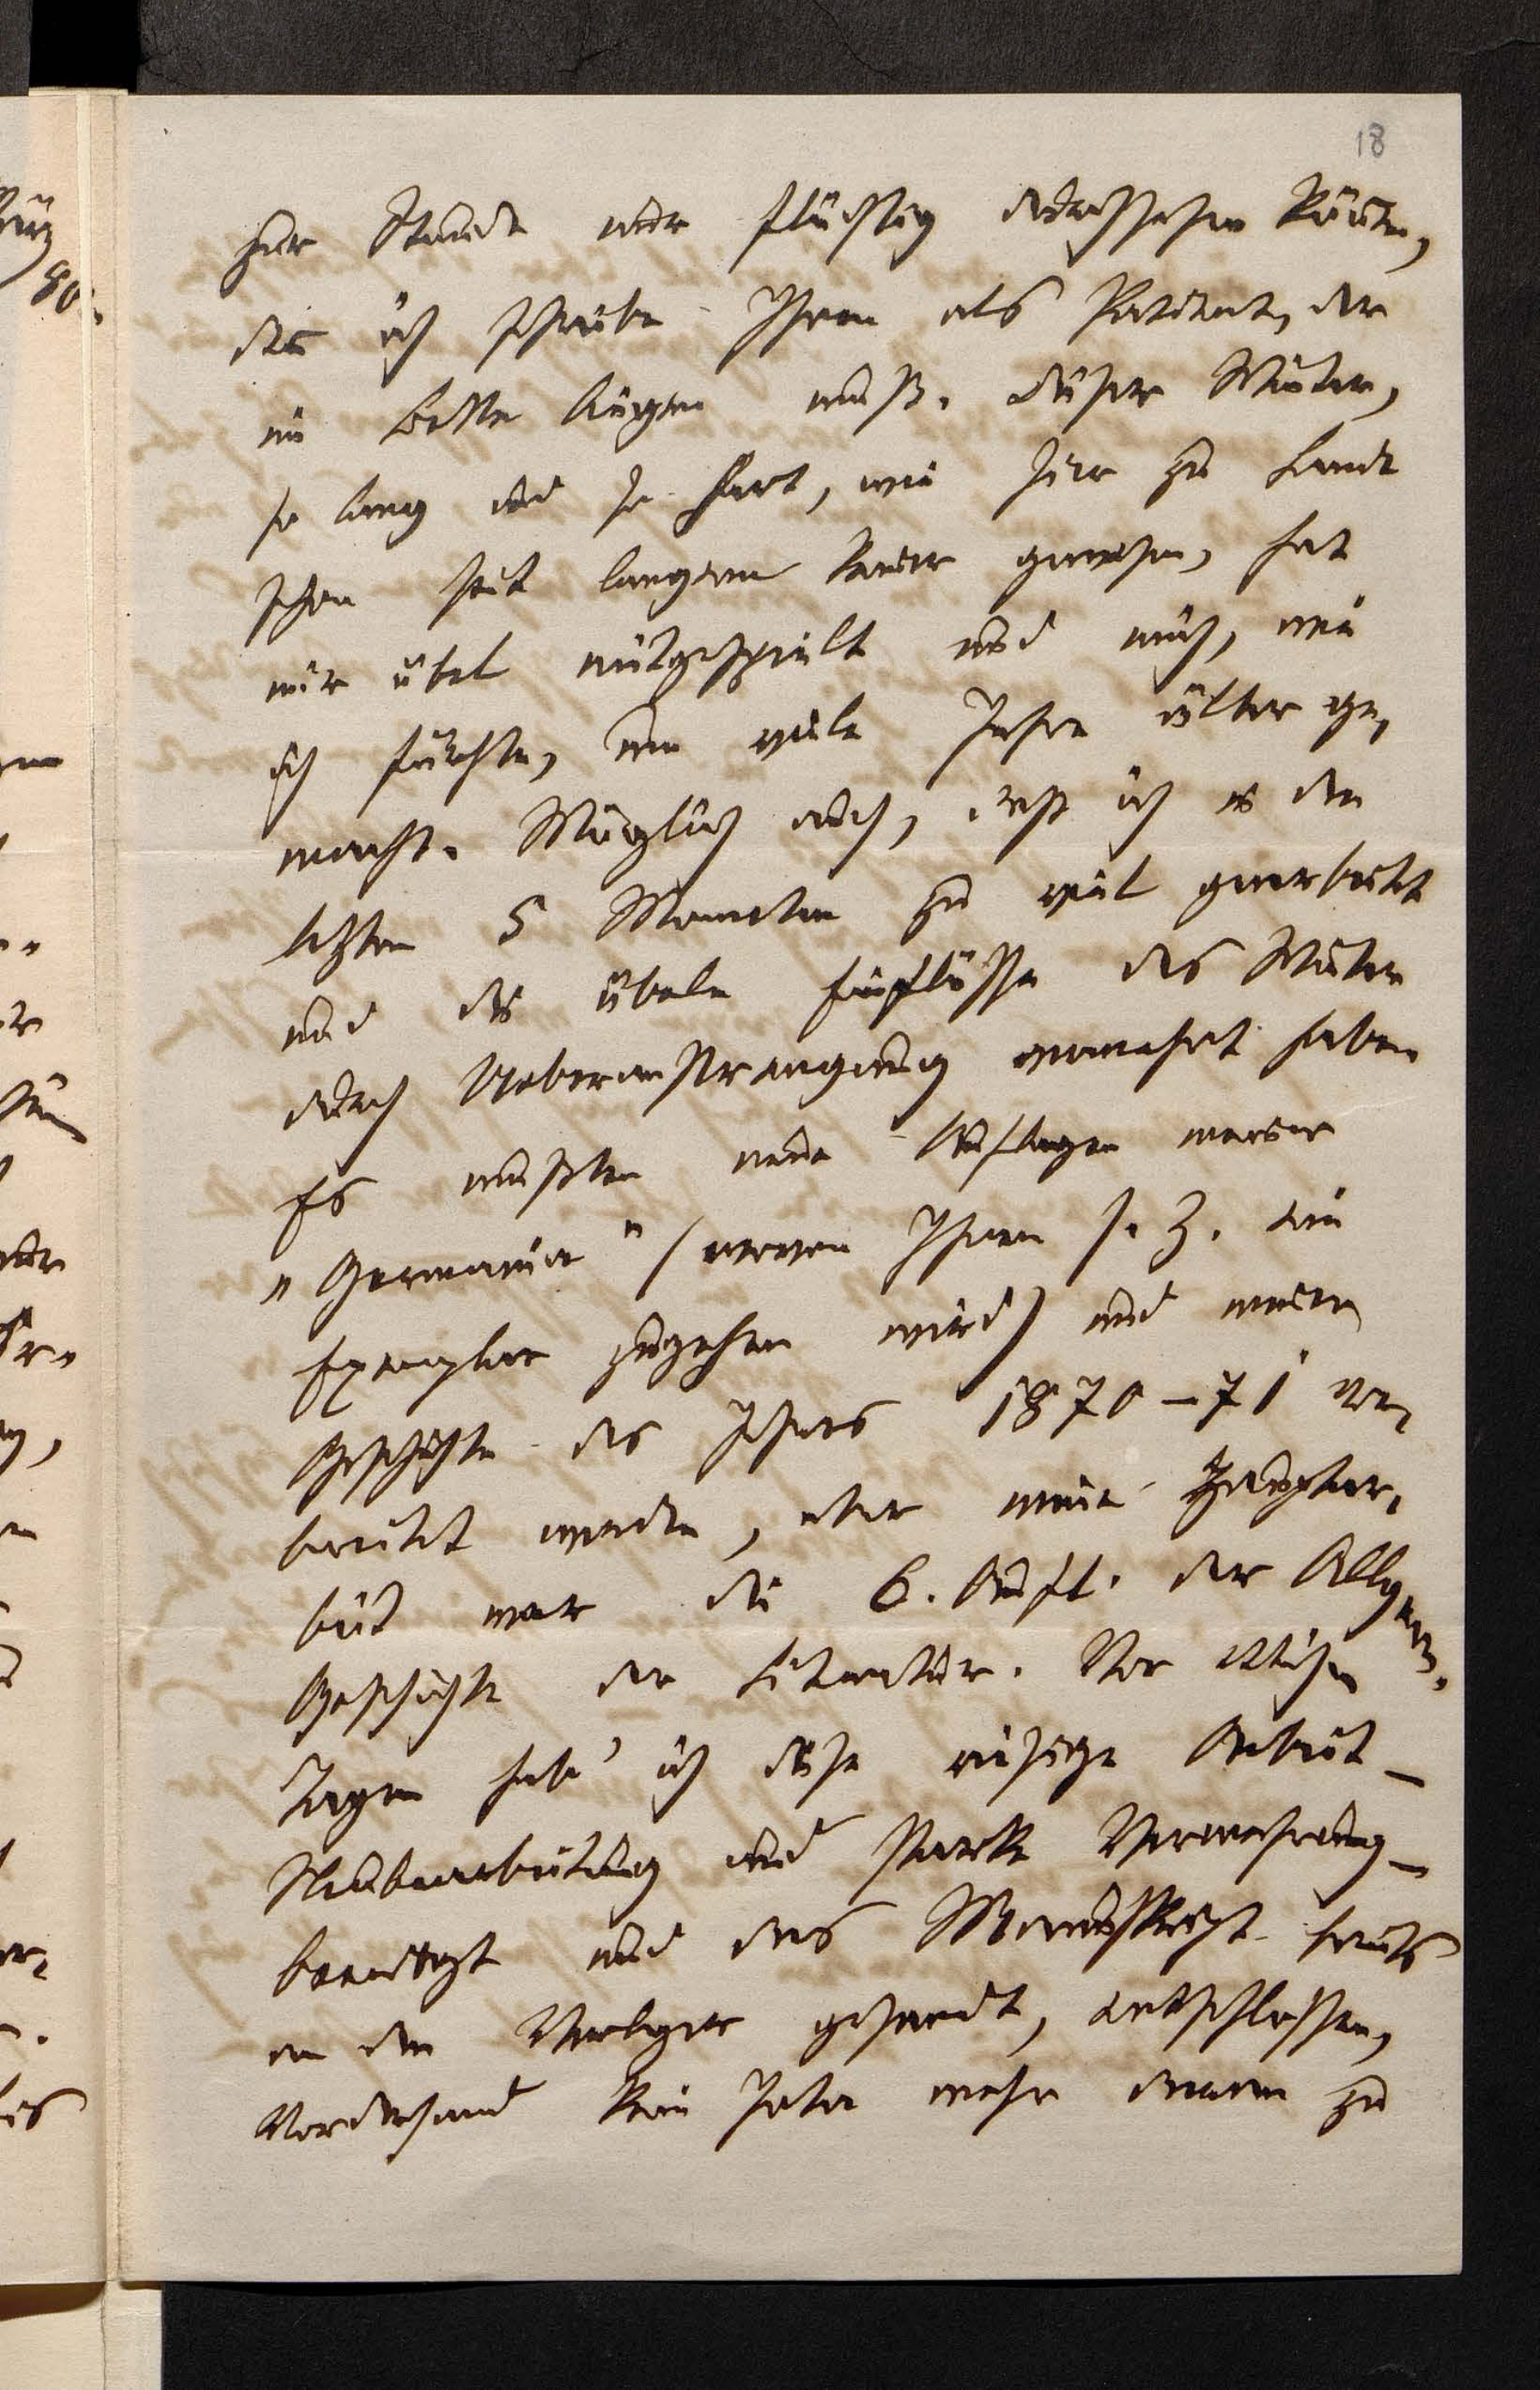 18
zur Stunde nur flüchtig durchsehen können,
da ich schreibe Ihnen als Patient, der
im Bette liegen muß. Dieser Winter,
so lang und so hart, wie hier zu Lande
schon seit langem keiner gewesen, hat
mir übel mitgespielt und mich, wie
ich fürchte, um viele Jahre älter ge-
macht. Möglich auch, daß ich in den
letzten 5 Monaten zu viel gearbeitet
und die übeln Einflüsse des Winters
durch Ueberanstrengung vermehrt habe.
Es mußten neue Auflagen meiner
„Germania" (wovon Ihnen s. Z. ein
Exemplar zugehen wird) und meiner
Geschichte des Jahres 1870–71 vor-
bereitet werden, aber meine Hauptar-
beit war die 6. Aufl. der Allgem.
Geschichte der Literatur. Vor etlichen
Tagen hab' ich diese riesige Arbeit –
Neubearbeitung und starke Vermehrung –
beendigt und das Manuskript heute
an den Verleger gesandt, entschlossen,
vorderhand kein Jota mehr daran zu